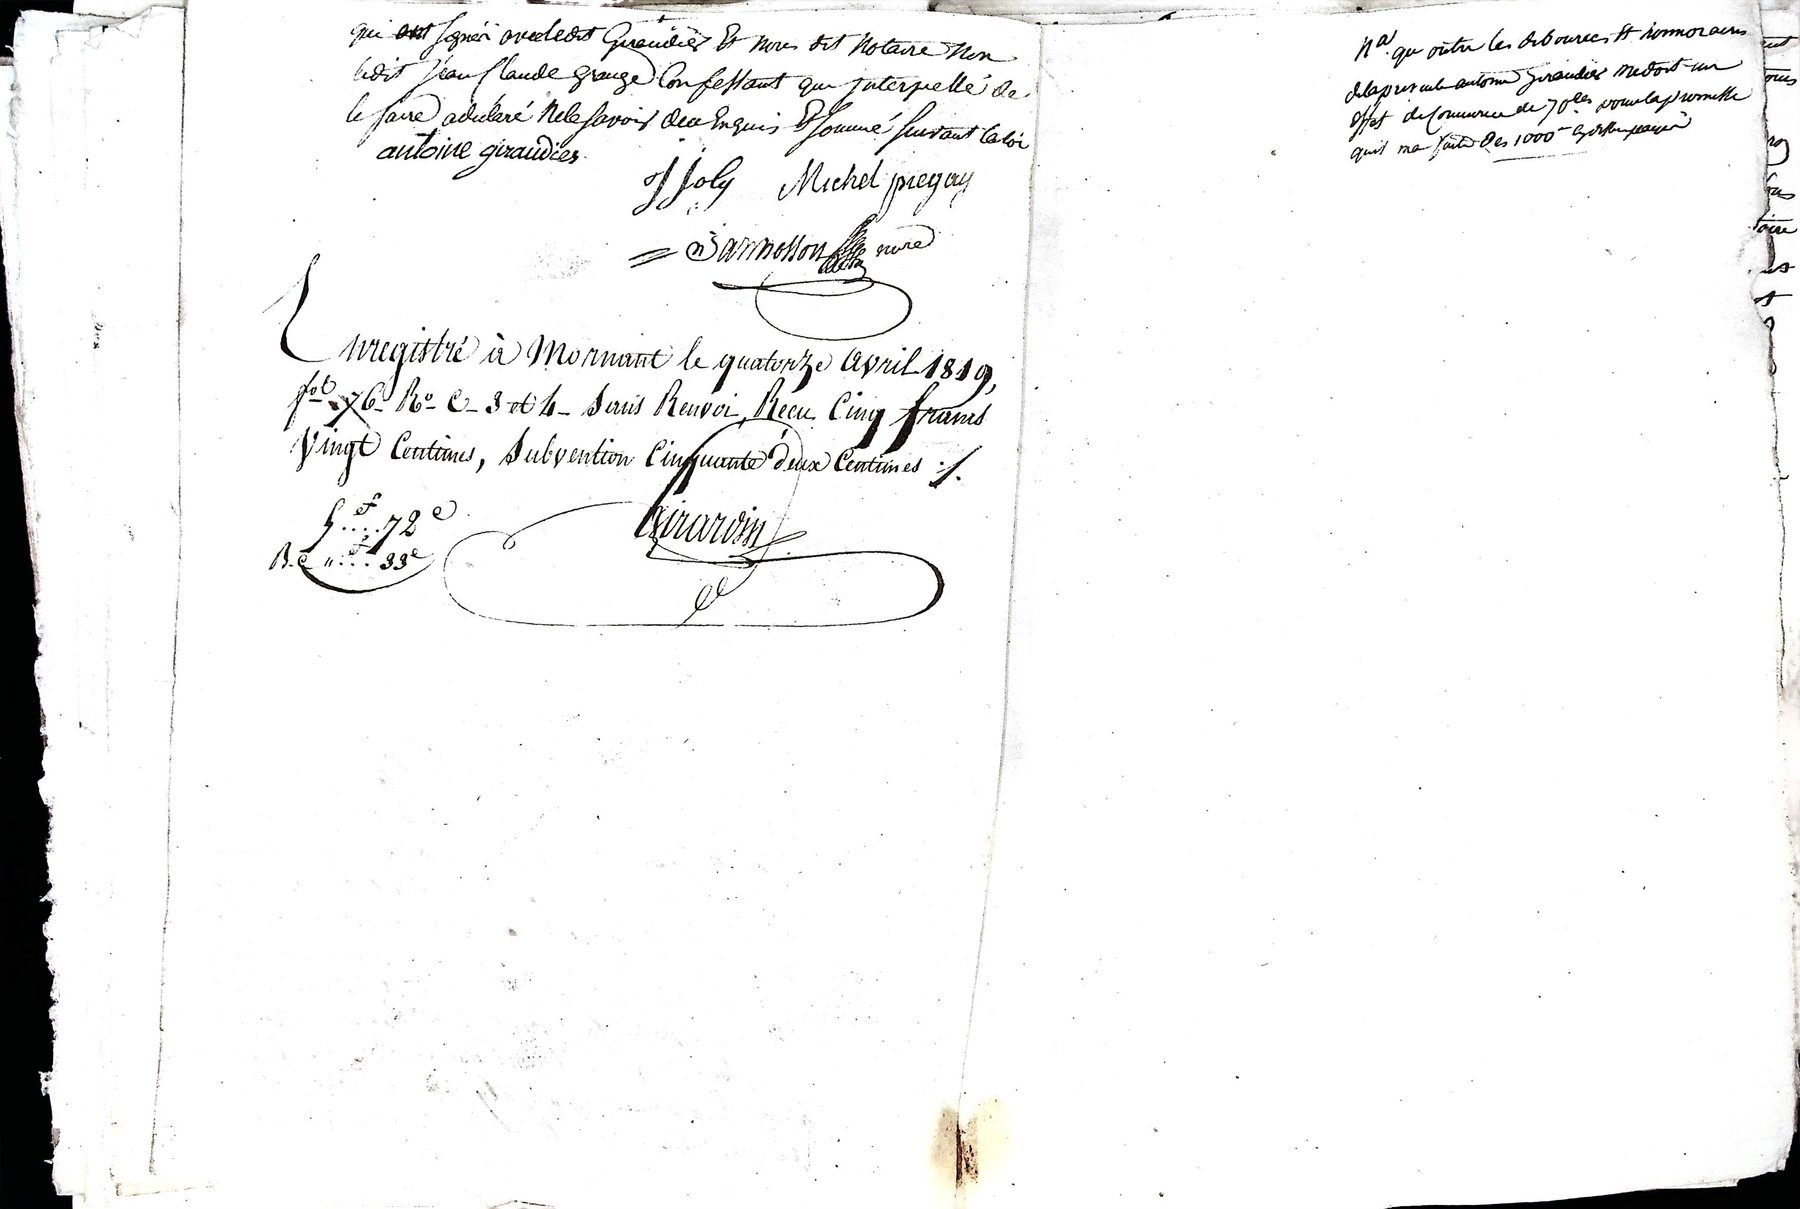 qui ont signés avec ledit Giraudier Et nous dit notaire non
ledit jean Claude grange Confessant que jnterpellé de
le faire adéclaré Nelesavoir dece Enquis Et sommé suivant la loi
antoine giraudier
jf joly Michel piegay
Sarmosson nore
Enregistré à Mornant le quatorze avril 1819,
fol 76 Ro C 3 et 4 sans Renvoi, Recu Cinq francs
Vingt Centimes, subvention Cinquante deux Centimes
5f....72c
Girardin
B. C. "f... 33c
Na. que outre les debourcés Et honnoraires
dela presente antoine Giraudier medoit un
effet de Commerce de 70
quil ma faite Des 1000